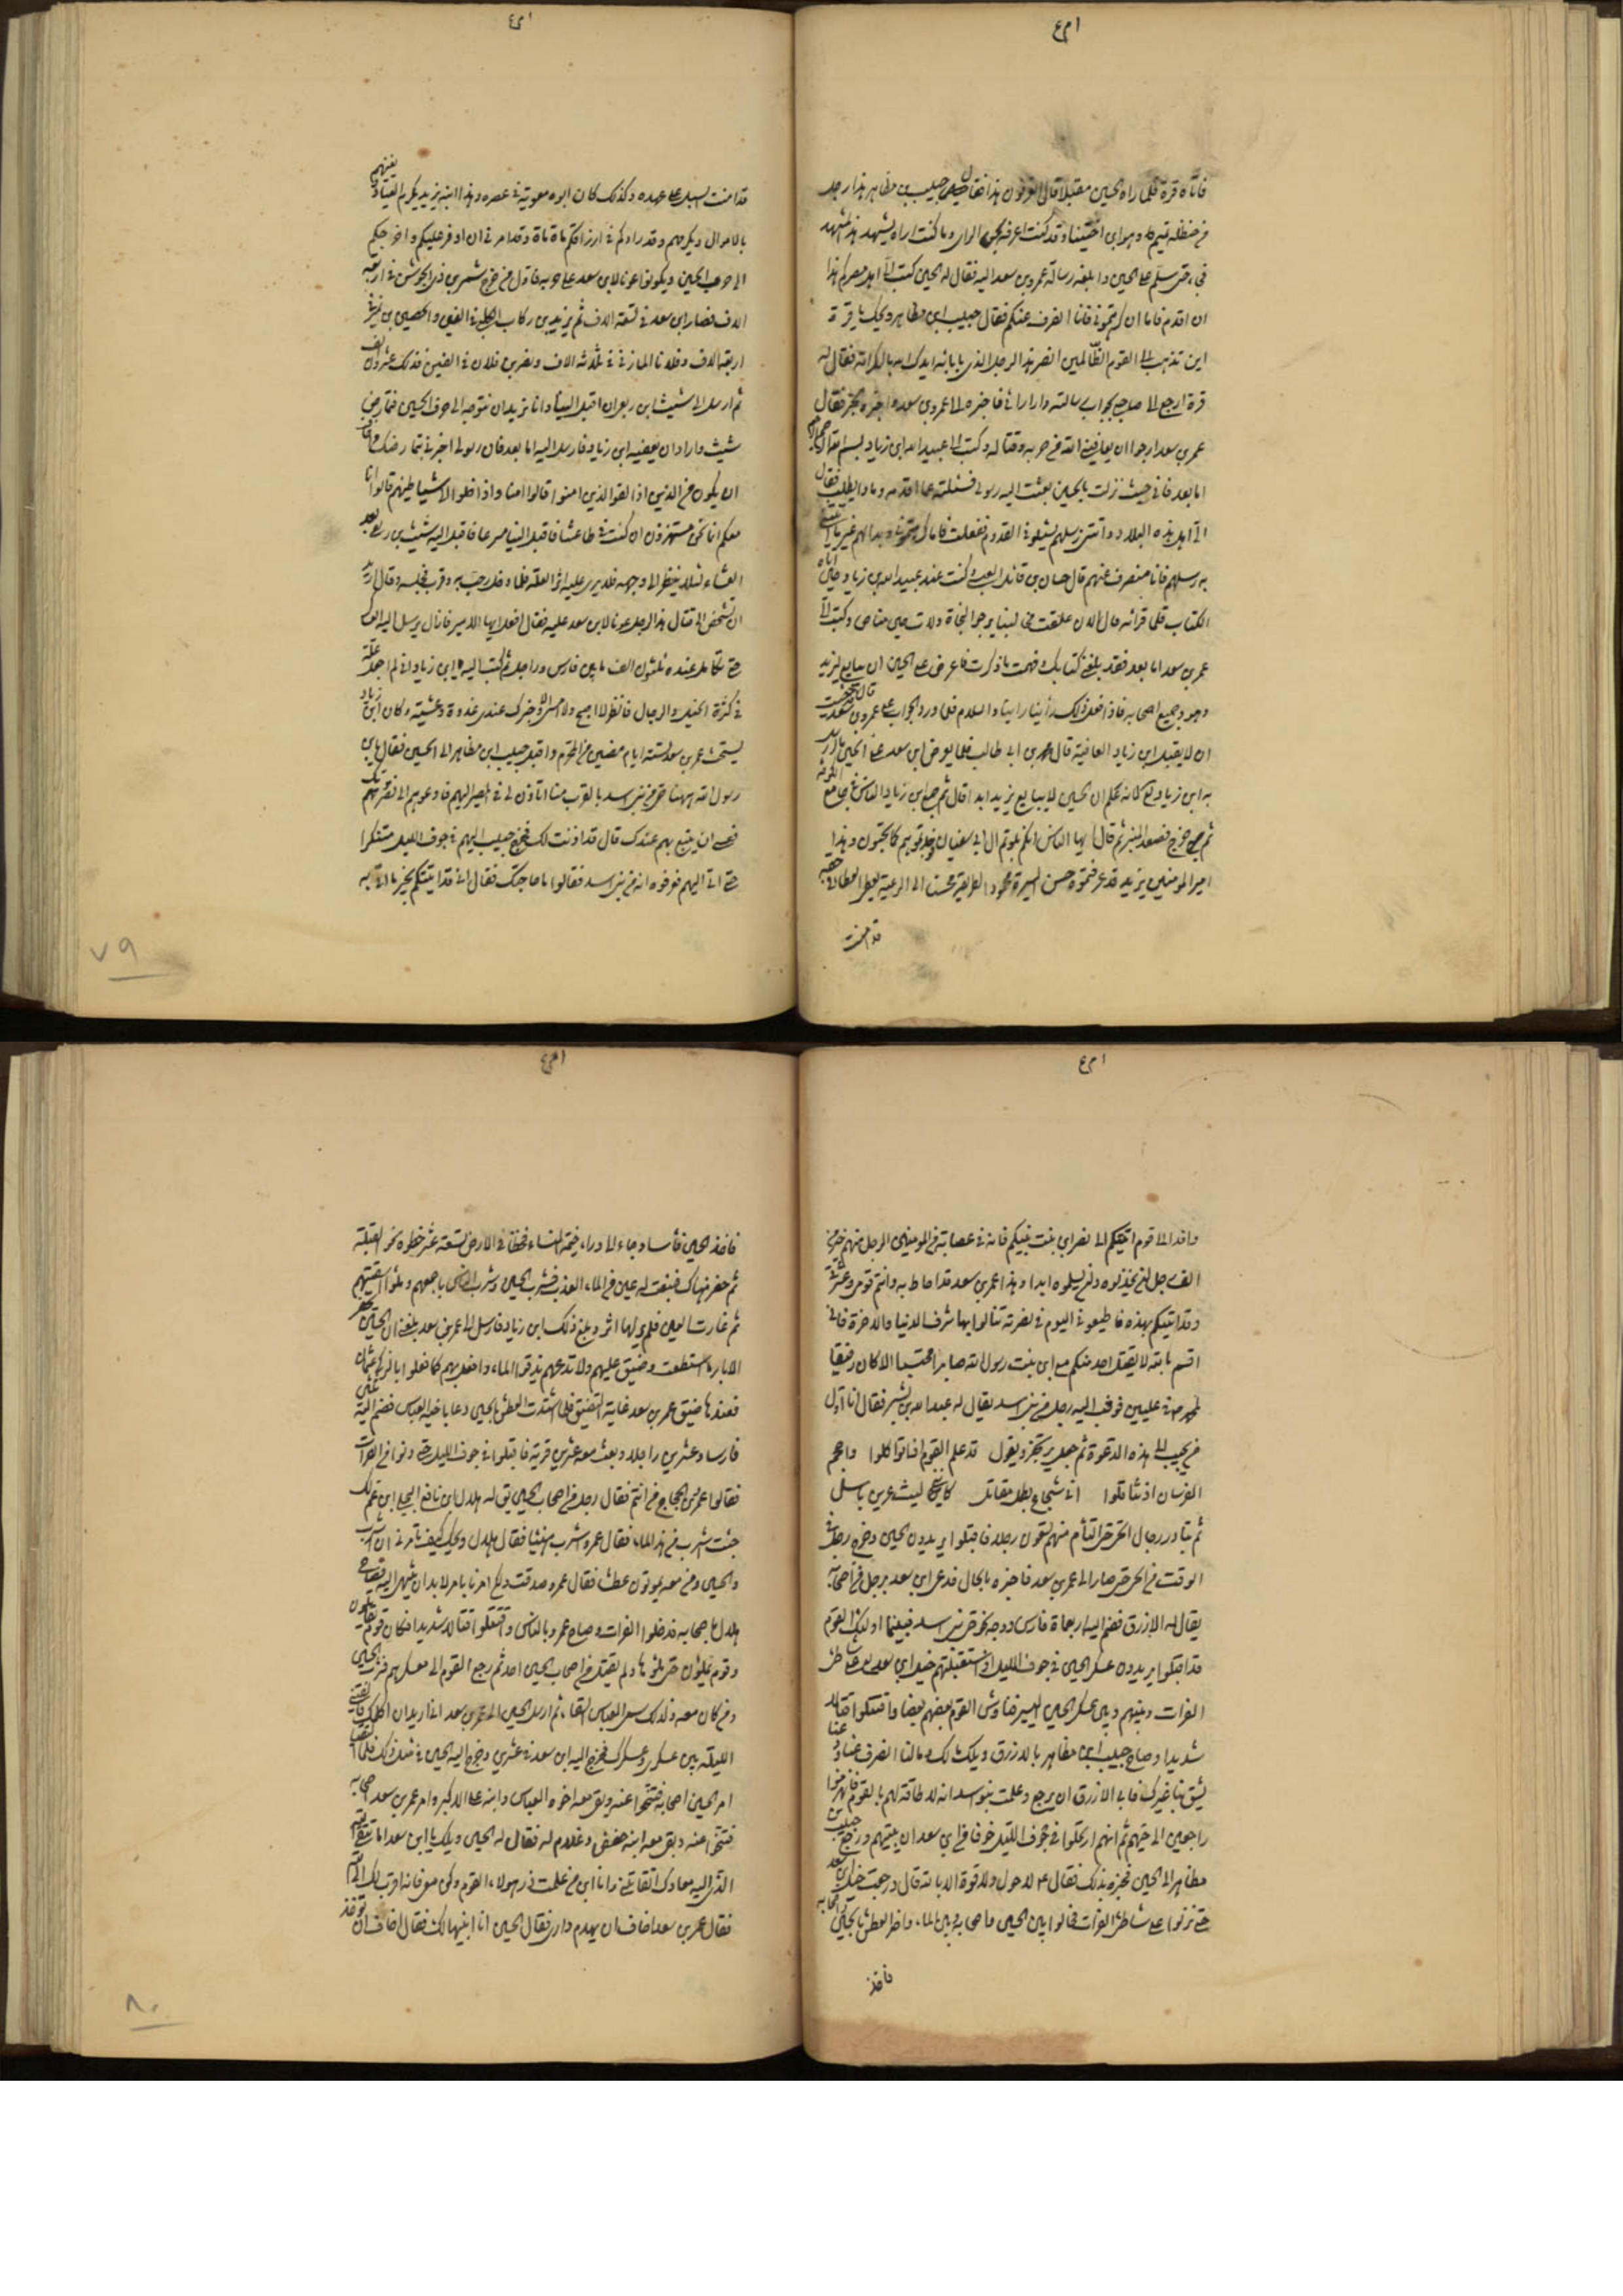 ا م ع
فاتاه قرة فلما راه الحسين مقبلا قال اتعرفون هذا فقال حبيب بن مظاهر هذا رجل
من حنظلة تميم وهو ابن اختنا وقد كنت اعرفه بحسن الراى وما كنت اراه يشهد هذا المشهد
فجاء حتى سلم على الحسين وابلغه رسالة عمر بن سعد اليه فقال له الحسين كتب الى اهل مصركم هذا
ان اقدم فاما ان كرهتمونى فانا انصرف عنكم فقال حبيب ابن مظاهر ويحك يا قرة
اين تذهب الى القوم الظالمين انصر هذا الرجل الذى بابائه ايدك الله بالكرامة فقال له
قرة ارجع الى صاحبى بجواب رسالته وارى رائى فاخبره الى عمر بن سعد واخبره بخبر فقال
عمر بن سعد ارجوا ان يعافينى الله من حربه وقتاله وكتب الى عبيد الله ابن زياد بسم الله الرحمن الرحيم
اما بعد فانى حيث نزلت بالحسين بعثت اليه رسولى فسئلته عما اقدمه وماذا يطلب فقال
الى اهل هذه البلاد واتتنى رسلهم يسئلونى القدوم ففعلت فاما كرهتمونى وبدا لهم غير ما اتتنى
به رسلهم فانا منصرف عنهم قال حسان بن قائد العبسى وكنت عند عبيد الله بن زياد حين اتاه
الكتاب فلما قرائه قال الان علقت مخالبنا يرجو النجاة ولات حين مناص وكتب الى
عمر بن سعد اما بعد فقد بلغنى كتابك وفهمت ما ذكرت فاعرض على الحسين ان يبايع ليزيد
وهو وجميع اصحابه فاذا فعل ذلك رأينا راينا والسلام فلما ورد الجواب على عمر بن سعد قال قد خشيت
ان لا يقبل ابن زياد العافية قال محمد بن ابى طالب فلم يعرض ابن سعد على الحسين ما ارسل
به ابن زياد لانه علم ان الحسين لا يبايع يزيد ابدا قال ثم جمع ابن زياد الناس فى جامع الكوفة
ثم خرج فصعد المنبر ثم قال ايها الناس انكم بلوتم ال ابى سفيان فوجدتموهم كما تحبون وهذا
امير المؤمنين يزيد قد عرفتموه حسن السيرة محمود الطريقة محسنا الى الرعية يعطى العطاء فى حقه
قد امنت
ا م ع
قد امنت السبل على عهده وكذلك كان ابوه معوية فى عصره وهذا ابنه يزيد يكرم العباد يغنيهم
بالاموال ويكرمهم وقد زادكم فى ارزاقكم مائة مائة وقد امرنى ان اوفرها عليكم واخرجكم
الى حرب الحسين وتكونوا عونا لابن سعد على حربه فاول من خرج شمر بن ذى الجوشن فى اربعة
الاف فصار ابن سعد فى تسعة الاف ثم يزيد بن ركاب الكلبى فى الفين والحصين بن نمير فى
اربعة الاف وفلانا المازنى فى ثلاثة الاف ونصر بن فلان فى الفين فذلك عشرون الف
ثم ارسل الى شبث ابن ربعى ان اقبل الينا وانا نريد ان نتوجه الى حرب الحسين فتمارض
شبث واراد ان يعفيه ابن زياد فارسل اليه اما بعد فان رسولى اخبرنى بتمارضك واخاف
ان تكون من الذين اذا لقوا الذين امنوا قالوا امنا واذا خلوا الى شياطينهم قالوا انا
معكم انما نحن مستهزؤن ان كنت فى طاعتنا فاقبل الينا مسرعا فاقبل اليه شبث بن ربعى بعد
العشاء لئلا ينظر الى وجهه فلا يرى عليه اثر العلة فلما دخل رحب به وقرب مجلسه وقال اريد
ان تشخص الى قتال هذا الرجل عونا لابن سعد عليه فقال افعل ايها الامير فما زال يرسل اليه العساكر
حتى تكامل عنده ثلثون الف ما بين فارس وراجل ثم كتب اليه ابن زياد انى لم اجعل لك علة
فى كثرة الخيل والرجال فانظر لا اصبح ولا امسى الا وخبرك عندى غدوة وعشية وكان ابن زياد
يستحث عمر بن سعد لستة ايام مضين من المحرم واقبل حبيب ابن مظاهر الى الحسين فقال يا بن
رسول الله ههنا حى من بنى اسد بالقرب منا اتاذن لى فى المصير اليهم فادعوهم الى نصرتك
فعسى ان يدفع بهم عنك قال قد اذنت لك فخرج حبيب اليهم فى جوف الليل متنكرا
حتى اتى اليهم فعرفوه انه من بنى اسد فقالوا ما حاجتك فقال انى قد اتيتكم بخير ما اتى به
٧٩
ا م ع
وافد الى قوم اتيتكم الى نصر ابن بنت نبيكم فانه فى عصابة من المومنين الرجل منهم خير من
الف رجل لن يخذلوه ولن يسلموه ابدا وهذا عمر بن سعد قد احاط به وانتم قومى وعشيرتى
وقد اتيتكم بهذه فاطيعونى اليوم فى نصرته تنالوا بها شرف الدنيا والاخرة فانى
اقسم بالله لا يقتل احد منكم مع ابن بنت رسول الله صابرا محتسبا الا كان رفيقا
لمحمد ص فى عليين فوثب اليه رجل من بنى اسد يقال له عبد الله بن بشر فقال انا اول
من يجيب الى هذه الدعوة ثم جعل يرتجز ويقول قد علم القوم اذا تواكلوا واحجم
الفرسان اذ تثاقلوا انى شجاع بطل مقاتل كاننى ليث عرين باسل
ثم تبادر رجال الحى حتى التأم منهم تسعون رجلا فاقبلوا يريدون الحسين وخرج رجل فى
الوقت من الحى حتى صار الى عمر بن سعد فاخبره بالحال فدعا ابن سعد برجل من اصحابه
يقال له الازرق فضم اليه اربعمائة فارس ووجه نحو حى بنى اسد فبينما اولئك القوم
قد اقبلوا يريدون عسكر الحسين فى جوف الليل اذا استقبلتهم خيل ابن سعد على شاطئ
الفرات وبينهم وبين عسكر الحسين اليسير فناوش القوم بعضهم بعضا واقتتلوا قتالا
شديدا وصاح حبيب ابن مظاهر بالازرق ويلك مالك ومالنا انصرف عنا ودعنا
يشقى بنا غيرك فابى الازرق ان يرجع وعلمت بنو اسد انه لا طاقة لهم بالقوم فانهزموا
راجعين الى حيهم ثم انهم ارتحلوا فى جوف الليل خوفا من ابن سعد ان يبيتهم ورجع حبيب بن
مظاهر الى الحسين فخبره بذلك فقال ع لا حول ولا قوة الا بالله قال ورجعت خيل ابن سعد
حتى نزلوا على شاطئ الفرات فحالوا بين الحسين واصحابه وبين الماء واضر العطش بالحسين واصحابه
فاخذ
ا م ع
فاخذ الحسين فأسا وجاء الى وراء خيمة النساء فخطا فى الارض تسعة عشر خطوة نحو القبلة
ثم حفر هناك فنبعت له عين من الماء العذب فشرب الحسين وشرب الناس باجمعهم وملؤا اسقيتهم
ثم غارت العين فلم ير لها اثر وبلغ ذلك ابن زياد فارسل الى عمر بن سعد بلغنى ان الحسين يحفر
الابار ما استطعت وضيق عليهم ولا تدعهم يذوقوا الماء وافعل بهم كما فعلوا بالزكى عثمان
فعندها ضيق عمر بن سعد غاية التضييق فلما اشتدت العطش بالحسين دعا باخيه العباس فضم اليه ثلثين
فارسا وعشرين راجلا وبعث معه عشرين قربة فاقبلوا فى جوف الليل حتى دنوا من الفرات
فقالوا عمر بن الحجاج من انتم فقال رجل من اصحاب الحسين يق له هلال ابن نافع البجلى ابن عم لك
جئت اشرب من هذا الماء فقال عمرو اشرب هنيئا فقال هلال ويحك كيف تأمرنى ان اشرب
والحسين ومن معه يموتون عطشا فقال عمرو صدقت ولكن امرنا بامر لا بد ان ننتهى اليه فصاح
هلال باصحابه فدخلوا الفرات وصاح عمرو بالناس واقتتلوا قتالا شديدا فكان قوم يقاتلون
وقوم يملؤن حتى ملؤها ولم يقتل من اصحاب الحسين احد ثم رجع القوم الى معسكرهم فشرب الحسين
ومن كان معه ولذلك سمى العباس السقاء ثم ارسل الحسين الى عمر بن سعد انى اريد ان اكلمك فالقنى
الليلة بين عسكرى وعسكرك فخرج اليه ابن سعد فى عشرين وخرج اليه الحسين فى مثل ذلك فلما التقيا
امر الحسين اصحابه فتنحوا عنه وبقى معه اخوه العباس وابنه على الاكبر وامر عمر بن سعد اصحابه
فتنحوا عنه وبقى معه ابنه حفص وغلام له فقال له الحسين ويلك يا ابن سعد اما تتقى الله
الذى اليه معادك اتقاتلنى وانا ابن من علمت ذر هولاء القوم وكن معى فانه اقرب لك الى الله
فقال عمر بن سعد اخاف ان يهدم دارى فقال الحسين انا ابنيها لك فقال اخاف ان تؤخذ
٨٠